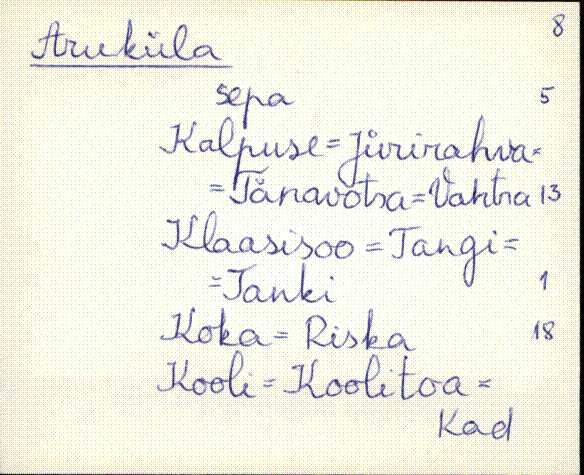 8
Aruküla
sepa 5
Kalpuse = Jürirahva =
= Tänavotsa = Vahtra 13
Klaasisoo = Tangi =
= Tanki 1
Koka = Riska 18
Kooli = Koolitoa =
Kad